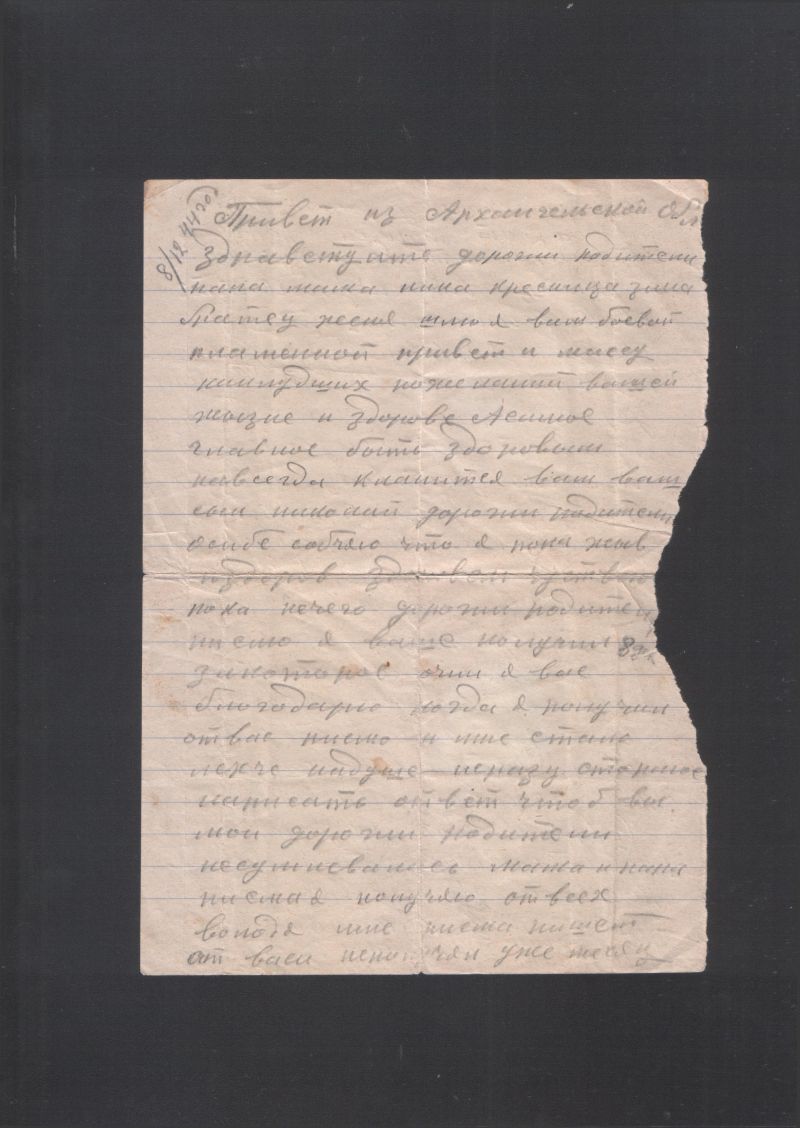 8/12 44 го
Привет из Архангельской Обл
Здравствуите дорогии родители
папа мама нина кресница зина
братец женя шлю я вам боевой
пламенной привет и массу
наилудших пожеланий вашей
жызне и здорове Асамое
главное быть здоровым
навсегда кланится вам ваш
сын николай дорогии родители
осибе собчяю что я пока жыв
издоров здоровем чуствую
пока нечего дорогии родители
письмо я ваше получил
закоторое очин я вас
благодарю когда я получил
отвас письмо и мне стало
лехче надуше исразу сторопился
написать ответ чтоб вы
мои дорогии родители
несумневались мама и папа
писма я получяю отвсех
володя мне писма пишет
от васи неполучял уже месяц